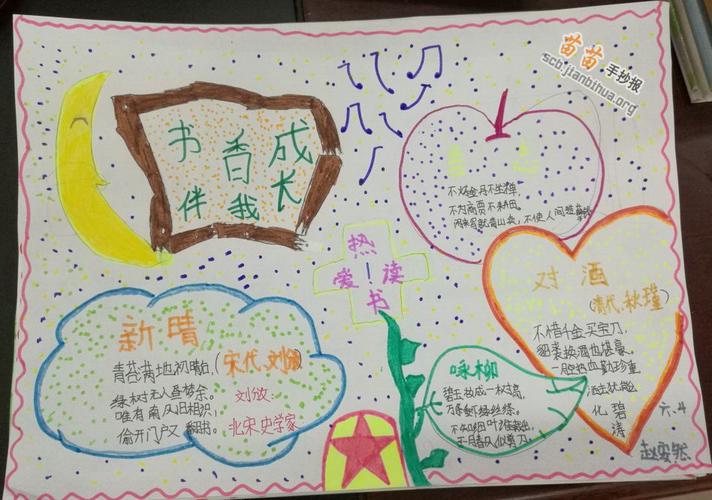 苗苗手抄报
scb.jianbihua.org
书香成
伴我长
言志
不炼金丹不坐禅,
不为商贾不耕田。
闲来写就青山卖,不使人间
热
爱!读
书
对酒
(清代.秋瑾)
不惜千金买宝刀,
貂裘换酒也堪豪。
一腔热血勤珍重,
洒去犹能
化碧
涛
六.4
新晴
(宋代.刘攽)
青苔满地初晴
绿树无人昼梦余。
唯有南风旧相识,
偷开门户又翻书。
刘攽:
北宋史学家
咏柳
碧玉妆成一树高,
万条垂下绿丝绦。
不知细叶谁裁出,
二月春风似剪刀。